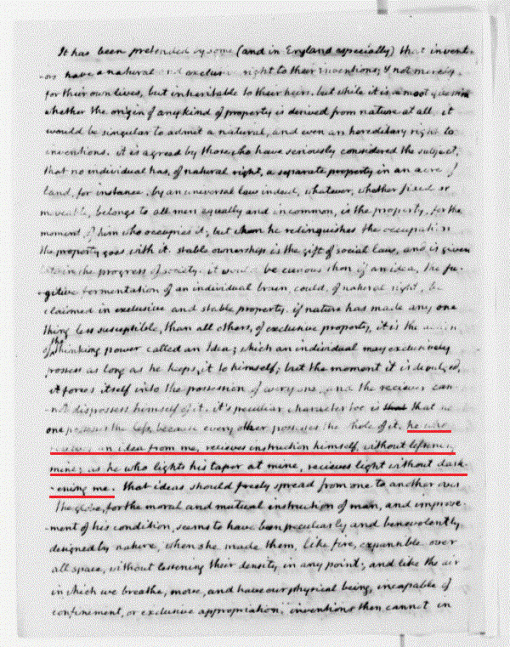 It has been pretended by some (and in England especially) that invent-
-ors have a natural and exclusive right to their inventions; & not merely
for their own lives, but inheritable to their heirs. but while it is a moot question
whether the origin of any kind of property is derived from nature at all, it
would be singular to admit a natural, and even an hereditary right to
inventions. it is agreed by those who have seriously considered the subject,
that no individual has, of natural right, a separate property in an acre of
land, for instance. by an universal law indeed, whatever, whether fixed or
moveable, belongs to all men equally and in common, is the property, for the
moment, of him who occupies it; but when he relinquishes the occupation
the property goes with it. stable ownership is the gift of social law, and is given
late in the progress of society. it would be curious then if an idea, the fu-
-gitive fermentation of an individual brain, could, of natural right, be
claimed in exclusive and stable property. if nature has made any one
thing less susceptible, than all others, of exclusive property, it is the action
of the thinking power called an Idea; which an individual may exclusively
possess as long as he keeps it to himself; but the moment it is divulged,
it forces itself into the possession of every one, and the reciever can-
-not dispossess himself of it. it's peculiar character too is that that no
one possesses the less, because every other possesses the whole of it. he who
recieves an idea from me, recieves instruction himself, without lessening
mine; as he who lights his taper at mine, recieves light without dark-
-ening me. that ideas should freely spread from one to another over
the globe, for the moral and mutual instruction of man, and improve-
-ment of his condition, seems to have been peculiarly and benevolently
designed by nature, when she made them, like fire, expansible over
all space, without lessening their density in any point; and like the air
in which we breathe, move, and have our physical being, incapable of
confinement, or exclusive appropriation. inventions then cannot in